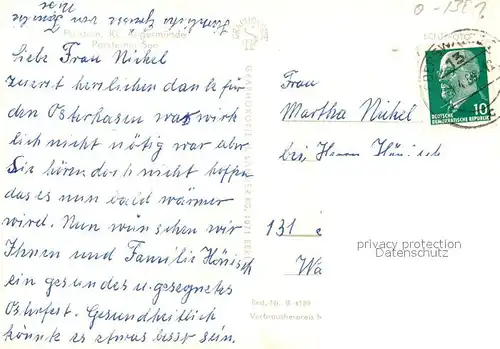 Herzliche Grüsse von Familie
Parstein, Kr. Angermünde
Parsteiner See
Liebe Frau Nickel
zuerst herzlichen dank für
den Osterhasen was wirk
lich nicht nötig war aber
Sie hören doch nicht hoffen
das es nun bald wärmer
wird. Nun wünschen wir
Ihnen und Familie Hönisch
ein gesundes u. gesegnetes
Osterfest. Gesundheitlich
könnte es etwas besst sein.
Frau
Martha Nickel
bei Herrn Hönisch
131
Wa
privacy protection
Datenschutz
Best.-Nr. B 4189
Verbraucherpreis
10
DEUTSCHE
DEMOKRATISCHE REPUBLIK
13